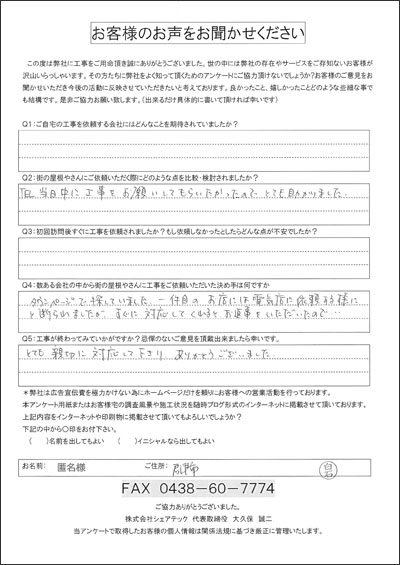 お客様のお声をお聞かせください
この度は弊社に工事をご用命頂き誠にありがとうございました。世の中には弊社の存在やサービスをご存知ないお客様が
沢山いらっしゃいます。その方たちに弊社をよく知って頂くためのアンケートにご協力頂けないでしょうか？お客様のご意見をお
聞かせいただき今後の活動に反映させていただきたいと考えております。良かったこと、嬉しかったことどのような些細な事で
も結構です。是非ご協力お願い致します。（出来るだけ具体的に書いて頂ければ幸いです）
Q1：ご自宅の工事を依頼する会社にはどんなことを期待されていましたか？
Q2：街の屋根やさんにご依頼いただく際にどのような点を比較・検討されましたか？
TEL当日中に工事をお願いしてもらいたかったので とても助かりました。
Q3：初回訪問後すぐに工事を依頼されましたか？もし依頼しなかったとしたらどんな点が不安でしたか？
Q4：数ある会社の中から街の屋根やさんに工事をご依頼いただいた決め手は何ですか
タウンページで探していました。一件目のお店には電気店に依頼する様に
と断られましたが、すぐに対応してくれるとお返事をいただいたので…
Q5：工事が終わってみていかがですか？忌憚のないご意見を頂戴出来ましたら幸いです。
とても親切に対応して下さり、ありがとうございました。
＊弊社は広告宣伝費を極力かけない為にホームページだけを頼りにお客様への営業活動を行っております。
本アンケート用紙またはお客様宅の調査風景や施工状況を随時ブログ形式のインターネットに掲載させて頂いております。
上記内容をインターネットや印刷物に掲載させて頂いてもよろしいでしょうか？
下記の中から〇印をお付下さい。
（　　）名前を出してもよい　（　　）イニシャルなら出してもよい
お名前: 匿名様 ご住所:
FAX 0438－60－7774
ご協力ありがとうございました。
株式会社シェアテック 代表取締役 大久保 誠二
当アンケートで取得したお客様の個人情報は関係法規に基づき厳正に管理いたします。